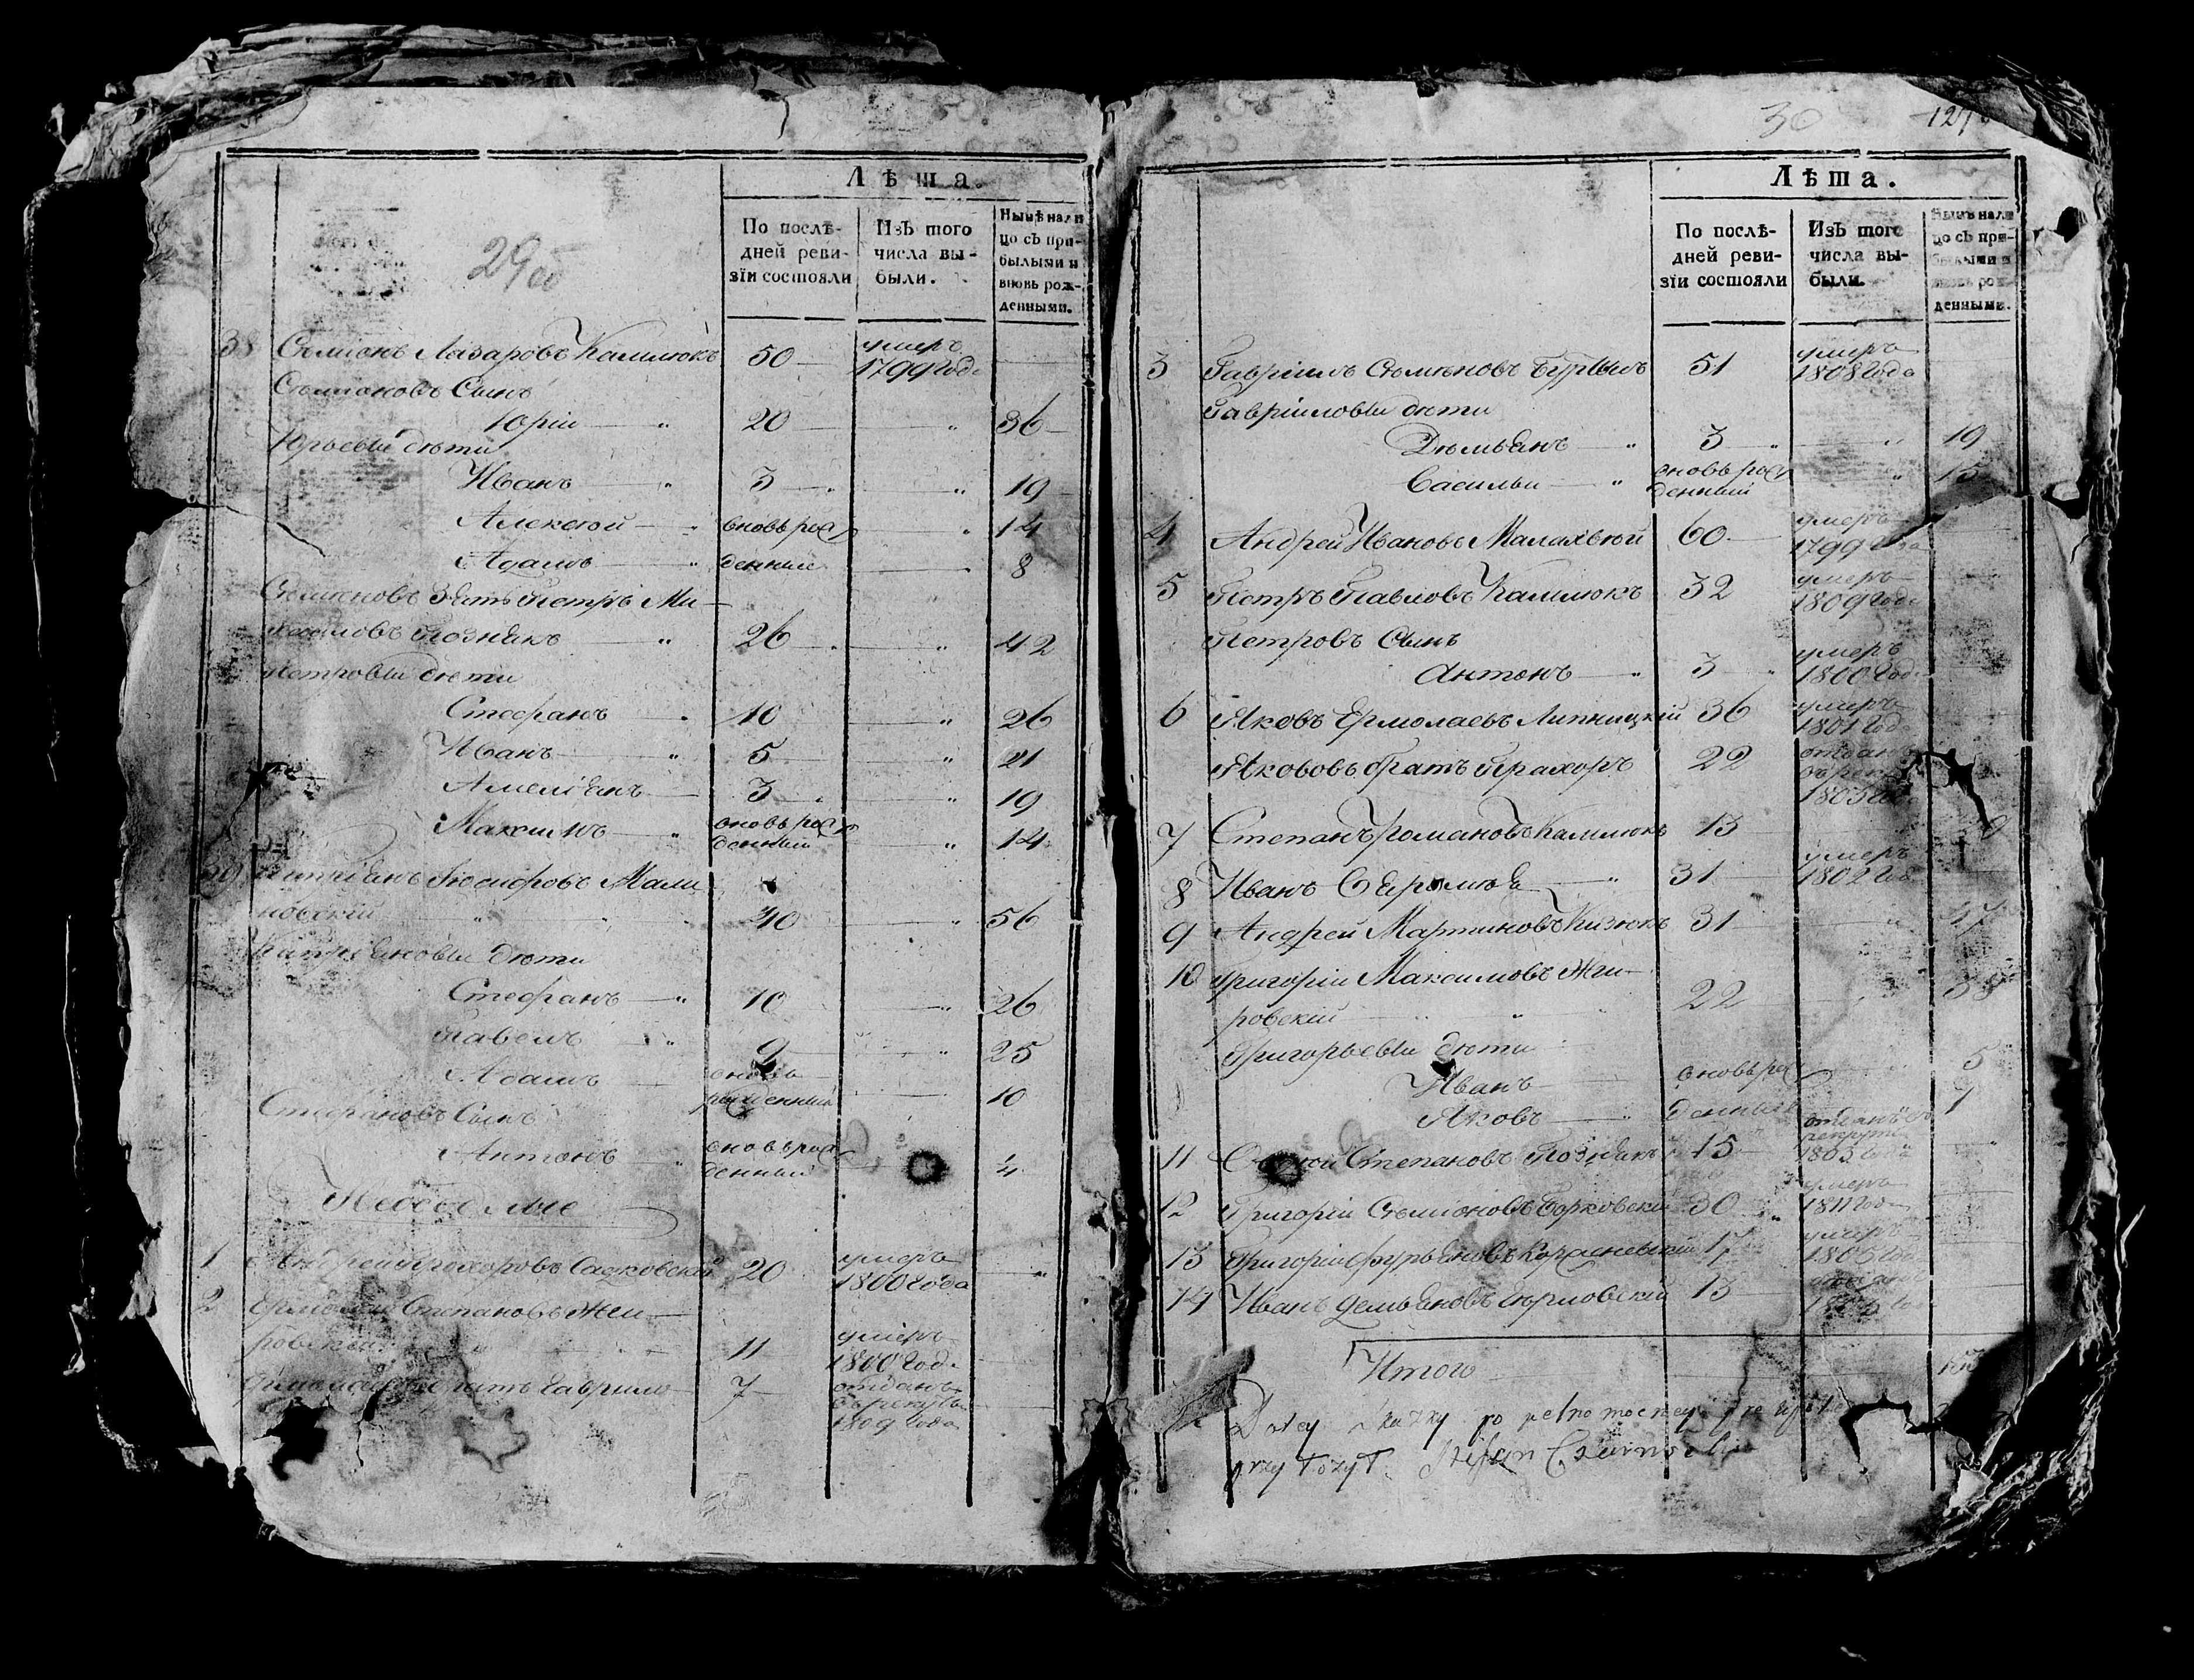 29об
Лѣта.
По послѣ-
дней реви-
зіи состояли
Изъ того
числа вы-
были.
Нынѣ нали
цо съ при-
былыми и
вновь рож-
денными.
38 Сѣмiонъ Лазаровъ Камлюкъ 50 умеръ
1799 года
Сѣмiоновъ Сынъ
Юрiи 20 36
Юрьевы дѣти
Иванъ 3 19
Алексѣй вновь рож 14
Адамъ денные 8
Сѣмiоновъ Зять Петръ Ми-
хайловъ Познякъ 26 42
Петровы дѣти
Стефанъ 10 26
Иванъ 5 21
Амелiянъ 3 19
Максимъ вновь рож
денный 14
39 Кипрiянъ Iосифовъ Мали
новскiй 40 56
Кипрiяновы дѣти
Стефанъ 10 26
Павелъ 9 25
Адамъ вновь
рожденный 10
Стефановъ Сынъ
Антонъ вновь рож
денный 1/4
Неосѣдлые
1 Андрей Прохоровъ Садковскiй 20 умеръ
1800 года
2 Ермолай Степановъ Жи-
ровскiй 11 умеръ
1800 года
братъ Гаврило 7 отданъ
въ рекруты
1809 года
30
Лѣта.
По послѣ-
дней реви-
зіи состояли
Изъ того
числа вы-
были.
Нынѣ нали
цо съ при-
былыми и
вновь рож-
денными.
3 Гаврiилъ Сѣменовъ 51 умеръ
1808 года
Гаврiиловы дѣти
Дѣмьянъ 3 19
Василiи вновь рож
денный 15
4 Андрей Ивановъ Малахвѣй 60 умеръ
1799 года
5 Петръ Павловъ Камлюкъ 32 умеръ
1809 года
Петровъ Сынъ
Антонъ 3 умеръ
1800 года
6 Яковъ Ермолаевъ Липницкiй 36 умеръ
1801 года
Ябратъ Прахоръ 22 отданъ
въ рекр
1805 года
7 Степанъ Романовъ Камлюкъ 13
8 Иванъ 31 умеръ
1802 год
9 Андрей Мартиновъ Кизюкъ 31 47
10 Григорiи Максимовъ Жи-
ровскiй 22 38
Григорьевы дѣти
Иванъ вновь рож 5
Яковъ денные
11 Степановъ Познякъ 15 отданъ въ
рекруты
1803 года
12 Григорiи Сѣмiоновъ Борковскiй 30 умеръ
1811 года
13 Григорiи 17 умеръ
1805 года
14 Иванъ Демьяновъ 13
Итого
Do tey skazky po pelno mocney
przyłożył Stefan